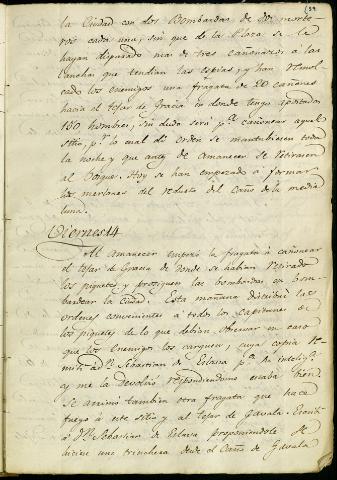 la Ciudad con dos Bombardas de dos morte-
ros cada una, sin que de la Plaza se le
hayan disparado mas de tres cañonazos a las
lanchas que tendian las espias, y han remol
cado los enemigos una fragata de 20 cañones
hacia el tejar de Gracia en donde tengo apostados
150 hombres, sin duda será pª cañonear aquel
sitio, pr lo cual di orden se mantubiesen toda
la noche y que antes de amanecer se retirasen
al Bosque. Hoy se han empezado a formar
los merlones del reducto del Caño de la media
luna.
Viernes 14.
Al amanecer empezó la fragata á cañonear
el tejar de Gracia de donde se habian retirado
los piquetes y prosiguen las bombardas en bom-
bardear la Ciudad. Esta mañana distribuí las
ordenes convenientes a todos los capitanes de
los piquetes de lo que debian observar en caso
que los enemigos los carguen, cuya copia re-
miti á Dn Sebastian de Eslava pª su inteligª
y me la devolvió respondiendome estaba bien.
Se arrimó tambien otra fragata que hace
fuego á este sitio y al Tejar de Gavala. Escribí
á Dn Sebastian de Eslava proponiendole se
hiciese una trinchera desde el Caño de Gavala